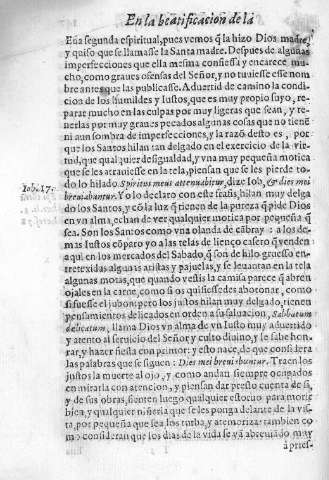 En la beatificacion de la
Eua segunda espiritual, pues vemos q̃ la hizo Dios madre,
y quiso que se llamasse la Santa madre. Despues de algunas
imperfecciones que ella mesma confiessa y encarece mu-
cho, como graues ofensas del Señor, y no tuuiesse esse nom
bre antes que las publicasse. Aduertid de camino la condi
cion de los humildes y Iustos, que es muy propio suyo, re-
parar mucho en las culpas por muy ligeras que sean, y te-
nerlas por muy graues pecados algunas cosas que no tiene
ni aun sombra de imperfecciones, y la razõ desto es, por
que los Santos hilan tan delgado en el exercicio de la vir-
tud, que qualquier desigualdad, y vna muy pequeña motica
que se les atrauiesse en la tela, piensan que se les pierde to-
do lo hilado. Spiritus meus attenuabitur, dize Iob, & dies mei
breuiabuntur. Yo lo declaro con este frasis, hilan muy delga
do los Santos, y cõ la luz q̃ tienen de la pureza q̃ pide Dios
en vn alma, echan de ver qualquier motica por pequeña q̃
sea. Son los Santos como vna olanda de cãbray: a los de-
mas Iustos cõparo yo a las telas de lienço casero q̃ venden
aqui en los mercados del Sabado, q̃ son de hilo gruesso en-
tretexidas algunas aristas y pajuelas, y se leuantan en la tela
algunas motas, que quando vestis la camisa parece q̃ abren
ojales en la carne, como si os quisiessedes abotonar, como
si fuesse el jubon: pero los justos hilan muy delgado, tienen
pensamientos delicados en orden a su saluacion, Sabbatum
delicatum, llama Dios vn alma de vn Iusto muy aduertido
y atento al seruicio del Señor y culto diuino, y le sabe hon-
rar, y hazer fiesta con primor: y esto nace, de que considera
las palabras que se siguen: Dies mei breuiabuntur. Traen los
justos la muerte al ojo, y como andan siempre ocupados
en mirarla con atencion, y piensan dar presto cuenta de si,
y de sus obras, sienten luego qualquier estoruo para morir
bien, y qualquier niñeria que se les ponga delante de la vis-
ta, por pequeña que sea los turba, y atemoriza: tambien co
mo consideran que los dias de la vida se vã abreuiado muy
à pries-
Iob. 17.